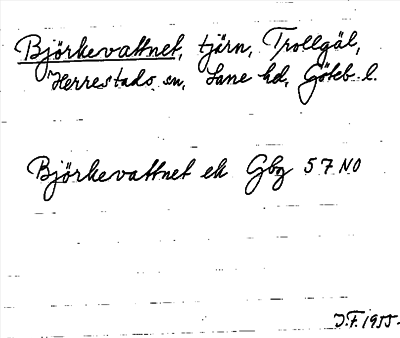 Björkevattnet, tjärn, Trollgäl,
Herrestads sn, Lane hd, Göteb. l.
Björkevattnet ek Gbg 57 NO
J.F. 1955.